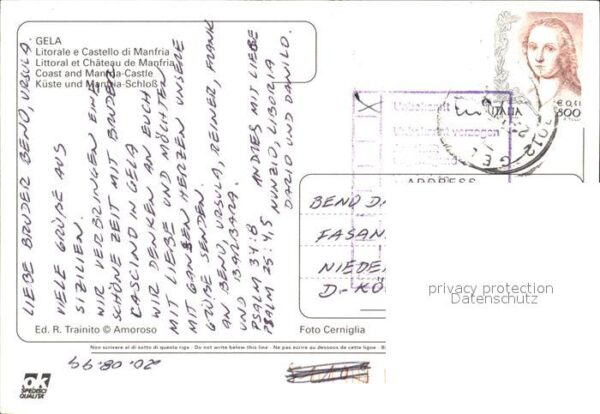 GELA
Litorale e Castello di Manfria
Littoral et Château de Manfria
Coast and Manfria-Castle
Küste und Manfria-Schloß
LIEBE BRUDER BENO, URSULA.
VIELE GRÜßE AUS
SIZILIEN.
WIR VERBRINGEN EINE
SCHÖNE ZEIT MIT BRUDER
CASCINO IN GELA
WIR DENKEN AN EUCH
MIT LIEBE UND MÖCHTEN
MIT GANZEN HERZEN UNSERE
GRÜßE SENDEN.
AN BENO, URSULA, REINER, FRANK
UND BARBARA.
PSALM 34:8
PSALM 25:4,5
ANDRES MIT LIEBE
NUNZIO, LIBORIA
DARIO UND DANILO.
ITALIA
€ 0,41
800
Unbekannt
Unbekannt verzogen
ADDRESS
BENO
FASAN
NIEDE
D-KÖ
privacy protection
Datenschutz
Ed. R. Trainito © Amoroso
Foto Cerniglia
Non scrivere al di sotto di questa riga - Do not write below this line - Ne pas ecrire au dessous de cette ligne -
20.08.99
OK
SPEDISCI
QUALITÀ